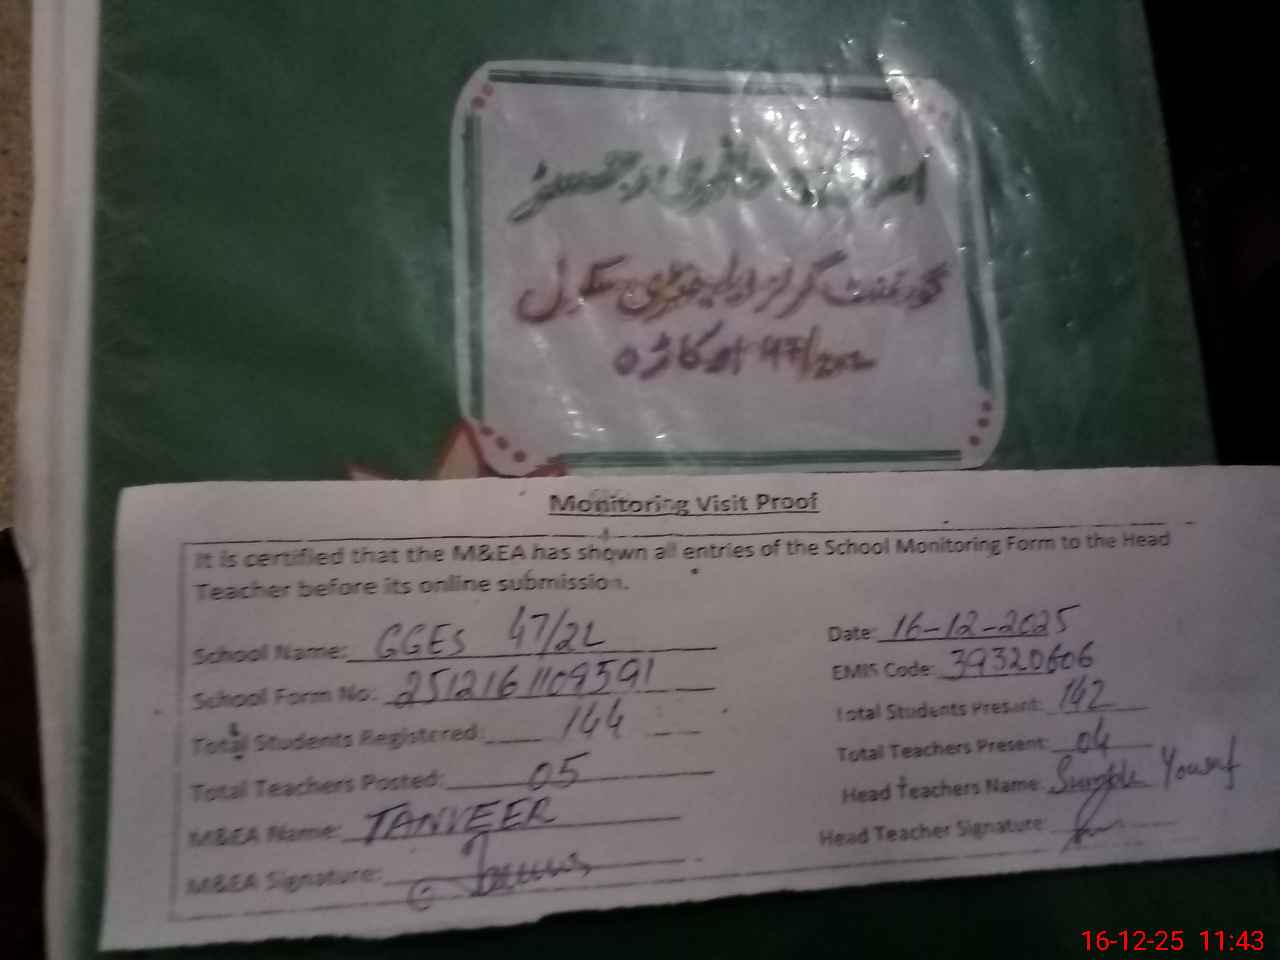 حاضری رجسٹر
گورنمنٹ گرلز ایلیمنٹری سکول
47/2L اوکاڑہ
Monitoring Visit Proof
It is certified that the M&EA has shown all entries of the School Monitoring Form to the Head
Teacher before its online submission.
School Name: GGES 47/2L Date: 16-12-2025
School Form No: 2512161109591 EMIS Code: 39320606
Total Students Registered: 144 Total Students Present: 142
Total Teachers Posted: 05 Total Teachers Present: 04
M&EA Name: TANVEER Head Teachers Name: Yousaf
M&EA Signature: Head Teacher Signature:
16-12-25 11:43